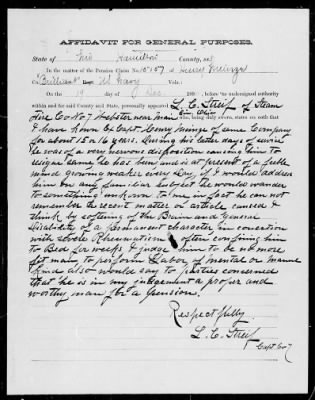 AFFIDAVIT FOR GENERAL PURPOSES.
State of Ohio Hamilton County, ss:
In the matter of the Pension Claim No. of Henry
"Brilliant" U.S. Navy
On the 19 day of Dec. before the undersigned authority
within and for said County and State, personally appeared L. C. Streif of Steam
Fire Co No 7 Webster near main
I have known Capt. Henry of same Company
for about 15 or 16 years. During his latter days of service
he was of a very nervous disposition causing him to
resign same, he has been and is at present of a feeble
mind growing weaker every day, if I would address
him on any familiar subject he would wander
to something unknown to me, in fact he can not
remember the recent matter or article caused I
think by softening of the Brain and General
disability of a permanent character in conection
with severe Rheumatism often confining him
to Bed for weeks, & judge him to be no more
fit man to perform labor of mental or manual
kind also would say to parties concerned
that he is in my judgement a proper and
worthy man for a pension.
Respectfully
L. C. Streif
Capt Co 7